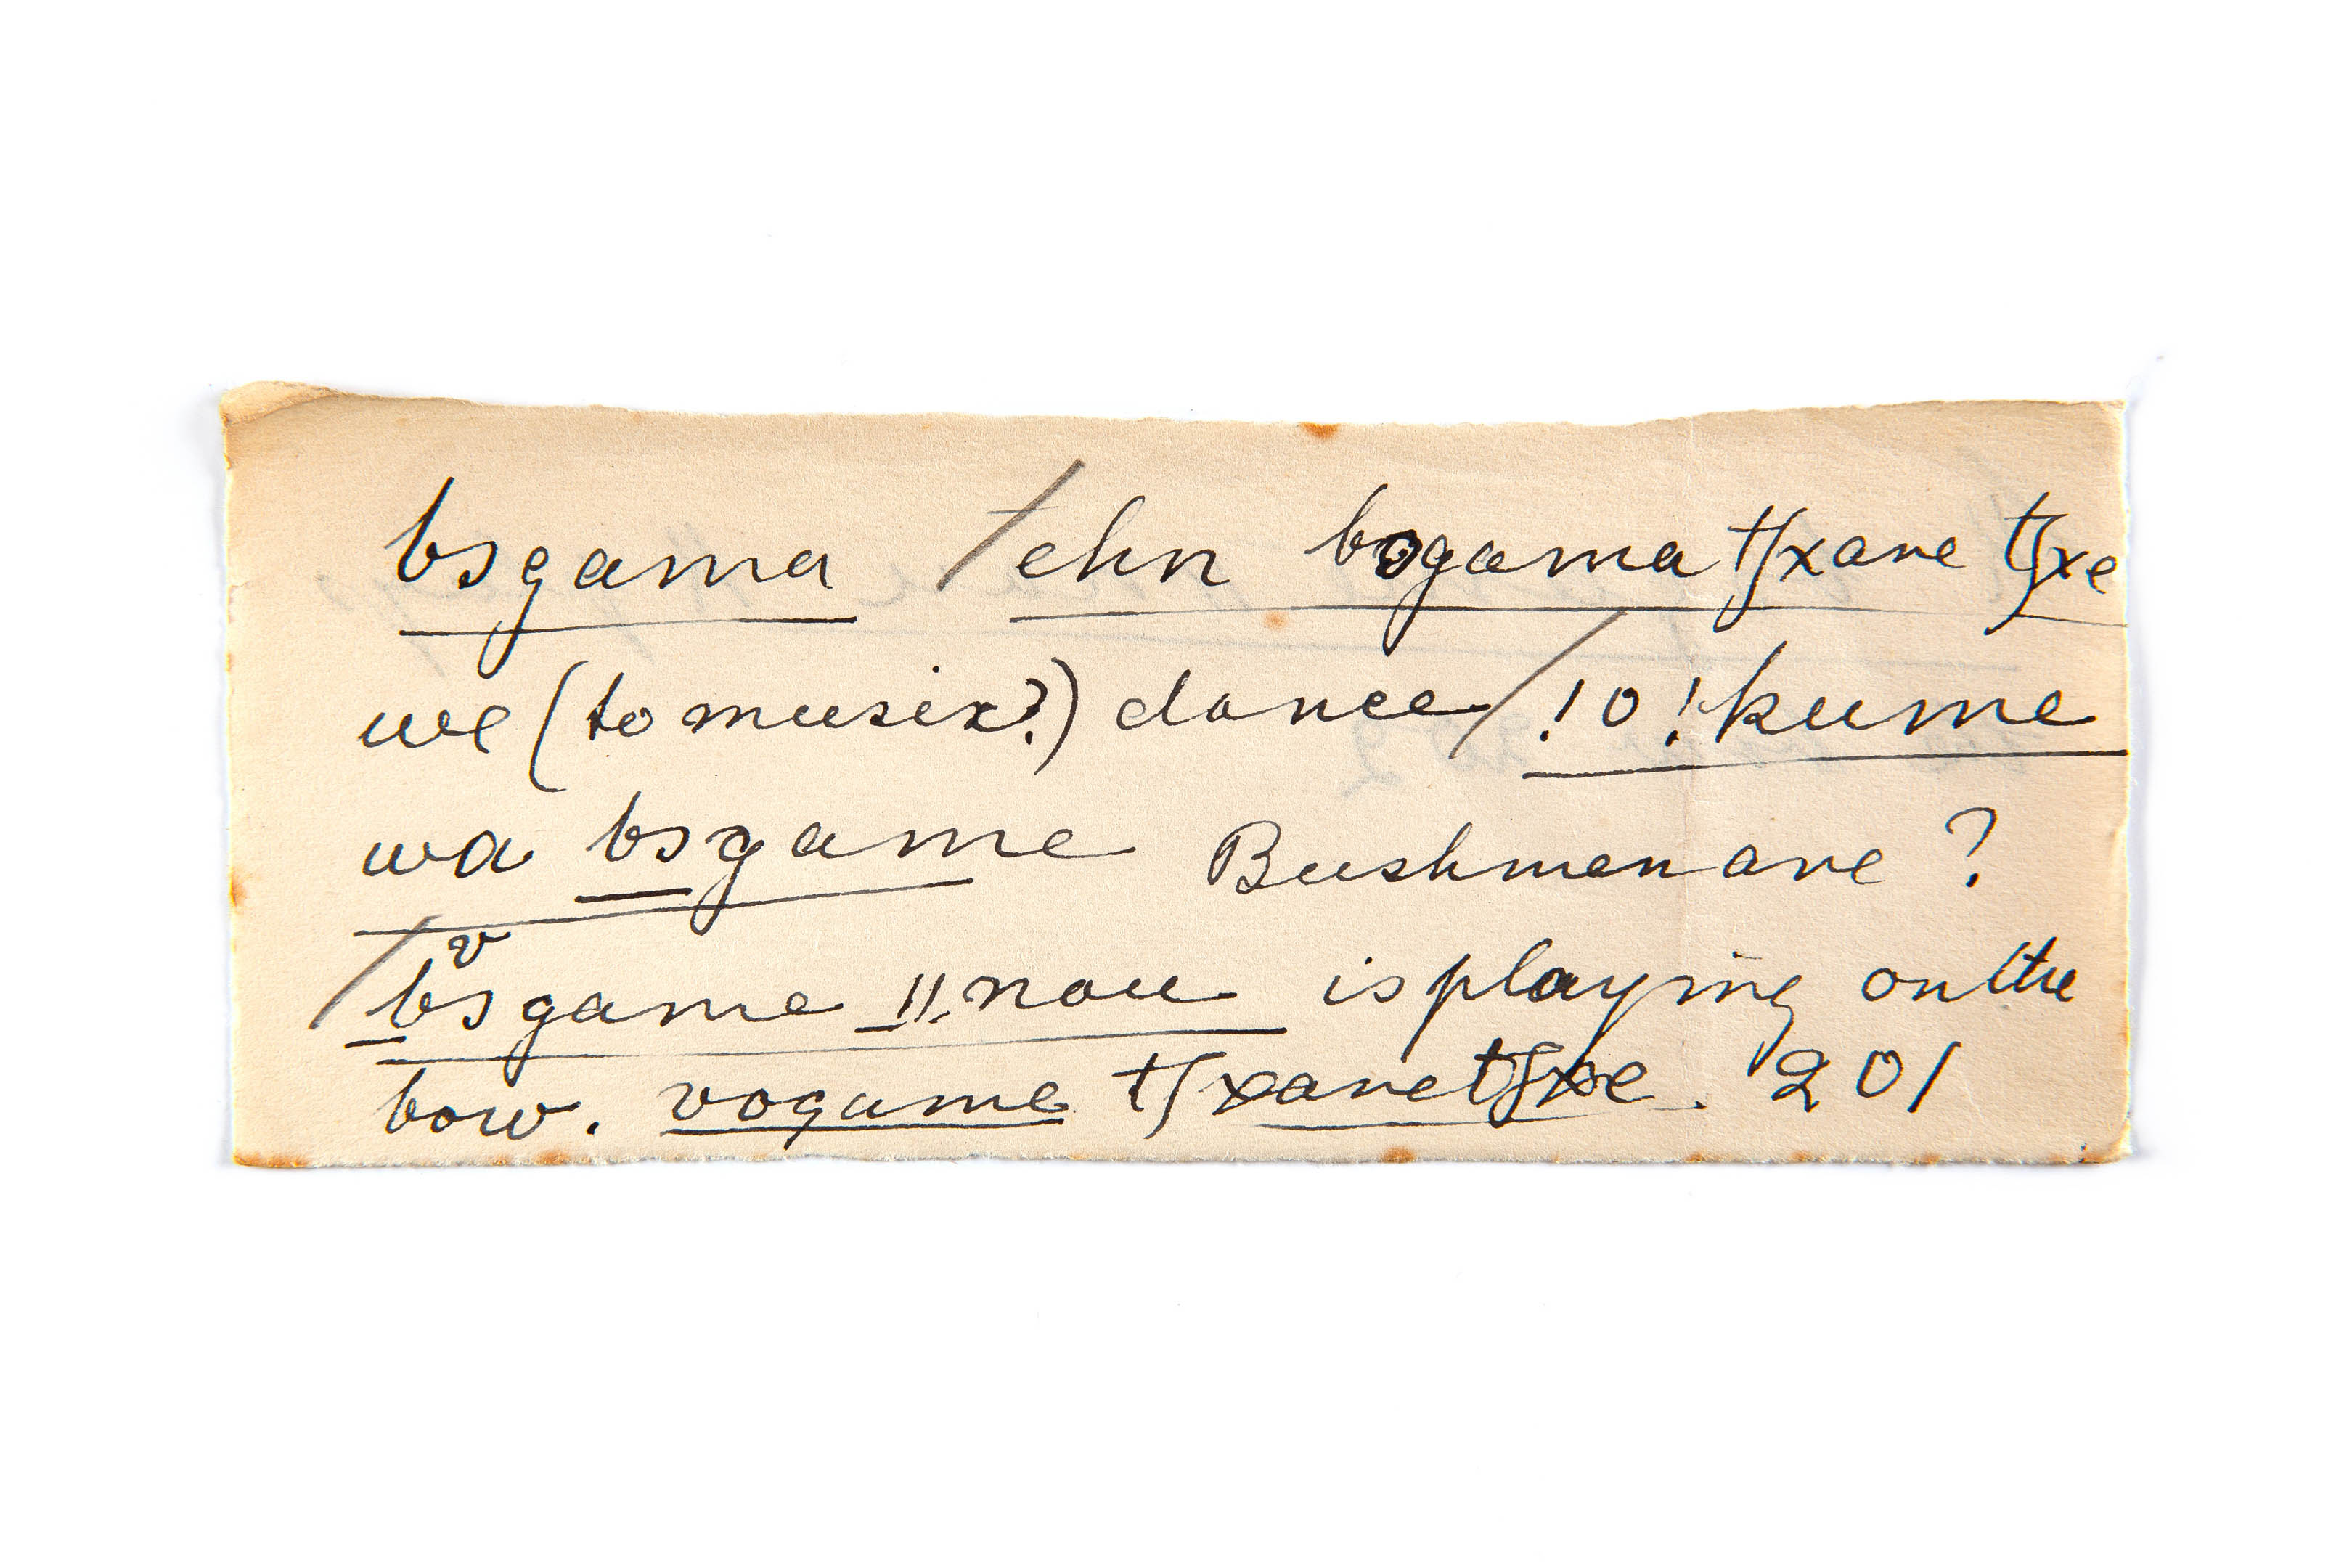 bɔgama / ehn bogama tʃxane tʃxe
we (to musix?) dance / !o!kume
wa bɔgame Bushmen are ?
/ bɔgame ǁnou is playing on the
bow. vogame tʃxane tʃxe. 201